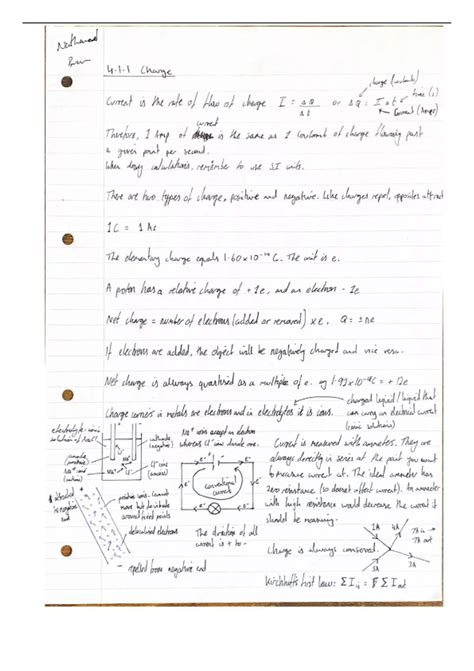 4.1.1 Charge
charge (coulombs)
time (s)
Current is the rate of flow of charge I = ΔQ / Δt or ΔQ = IΔt
Current (Amps)
current
Therefore, 1 Amp of is the same as 1 coulomb of charge flowing past
a given point per second.
When doing calculations, remember to use SI units.
There are two types of charge, positive and negative. Like charges repel, opposites attract
1C = 1As
The elementary charge equals 1.60x10⁻¹⁹ C. The unit is e.
A proton has a relative charge of +1e, and an electron -1e
Net charge = number of electrons (added or removed) x e. Q = ±ne
If electrons are added, the object will be negatively charged and vice versa.
Net charge is always quantised as a multiple of e. eg 1.92x10⁻¹⁸C = +12e
Charge carriers in metals are electrons and in electrolytes it is ions.
charged liquid / liquid that
can carry an electrical current
(ionic solutions)
electrolyte: ionic
solution of NaCl
Na⁺ ions accept an electron
whereas Cl⁻ ions donate one.
cathode
(negative)
anode
(positive)
Cl⁻ ions
Na⁺
Current is measured with ammeters. They are
always directly in series at the part you want
to measure current at. The ideal ammeter has
zero resistance (so doesn't affect current). An ammeter
with high resistance would decrease the current it
should be measuring.
e⁻
conventional
current
The direction of all
current is + to -.
attracted
to negative
end
positive ions. Cannot
move but do vibrate
around fixed points
delocalised electrons
repelled from negative end
Charge is always conserved.
2A
4A
5A
3A
7A in →
7A out
Kirchhoff's first law: ΣI in = ΣI out